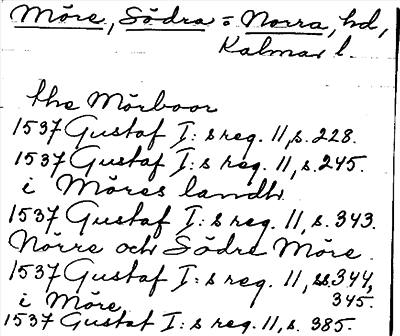 Möre, Södra o Norra, hd,
Kalmar l.
the Mörboar
1537 Gustaf I:s reg. 11, s. 228.
1537 Gustaf I:s reg. 11, s. 245.
i Möres landh
1537 Gustaf I:s reg. 11, s. 343.
Nörre och Södre Möre.
1537 Gustaf I:s reg. 11, ss. 344,
345.
i Möre
1537 Gustaf I:s reg. 11, s. 385.